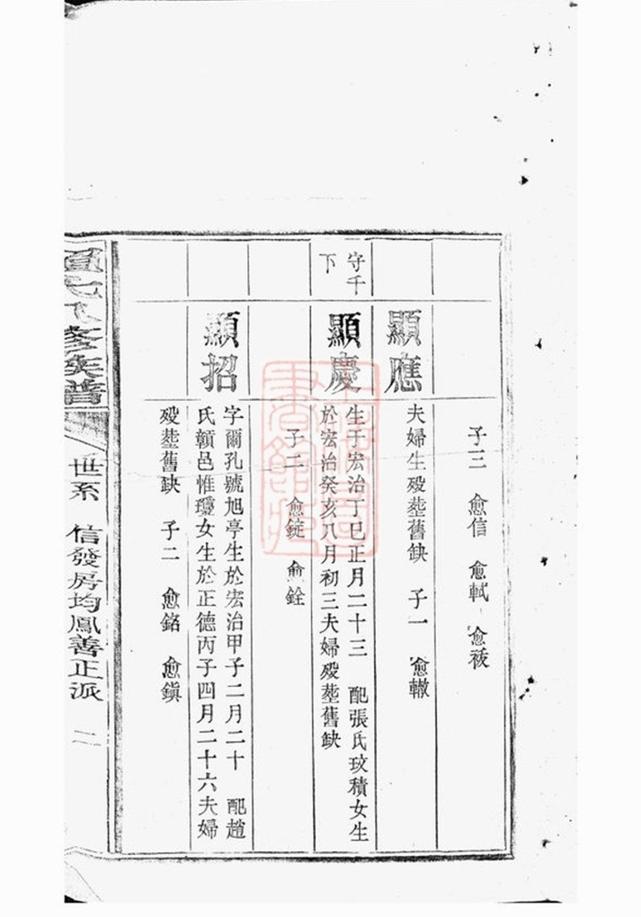 子三 愈信 愈軾 愈
顯應
夫婦生殁塟舊缺 子一 愈轍
守千下
顯慶
生于宏治丁巳正月二十三 配張氏玟積女生
於宏治癸亥八月初三夫婦殁塟舊缺
子二 愈錠 愈銓
顯招
字爾孔號旭亭生於宏治甲子二月二十 配趙
氏贛邑惟瓊女生於正德丙子四月二十六夫婦
殁塟舊缺 子二 愈銘 愈鎭
氏 修族譜
世系 信發房均鳳善正派 二